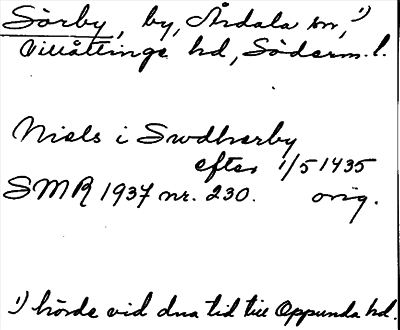 Sörby, by, Årdala sn, 1)
Villåttinge hd, Söderm. l.
Niels i Swdherby
efter 1/5 1435
SMR 1937 nr. 230. orig.
1) hörde vid dna tid till Oppunda hd.